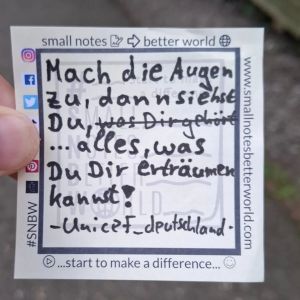 small notes → better world
Mach die Augen
zu, dann siehst
Du, was Dir gehört
... alles, was
Du Dir erträumen
kannst!
-Unicef_deutschland-
...start to make a difference...
#SNBW
www.smallnotesbetterworld.com